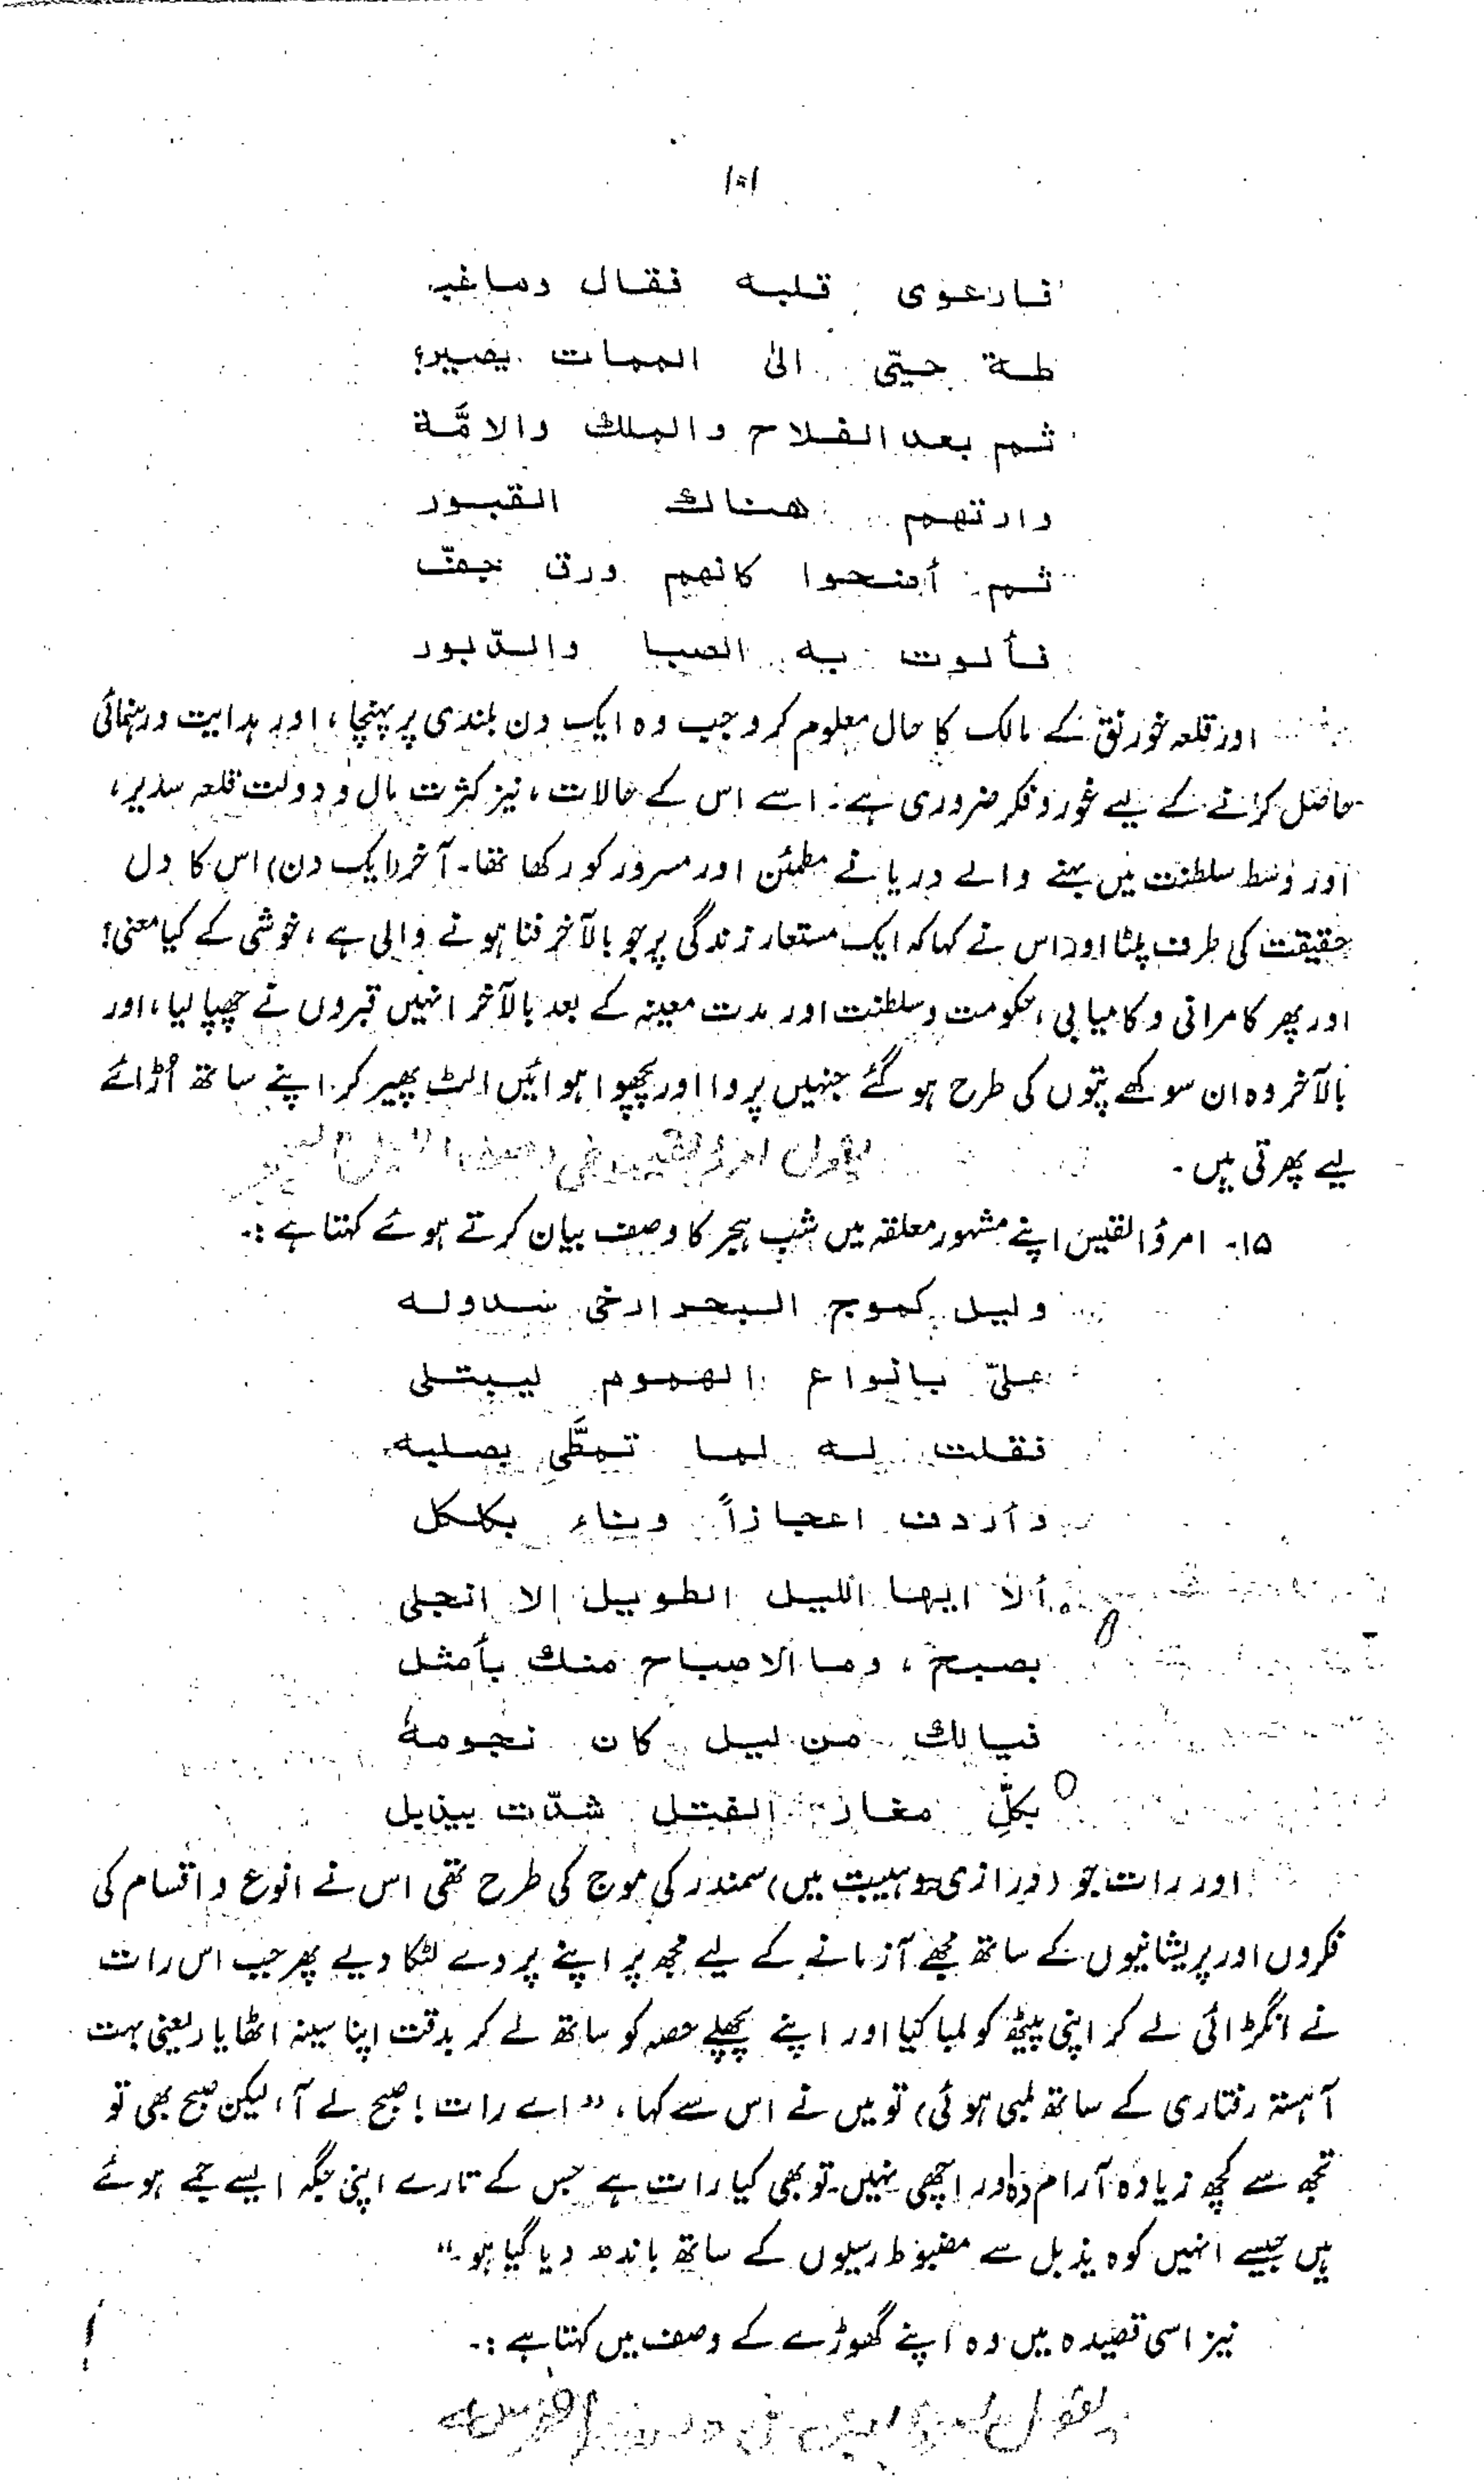 ۱۵۱
فارعوى قلبه فقال وماغبـ
طة حيّى الى الممات يصير؟
ثم بعد الفلاح والملك والامَّة
وارتهم هناك القبور
ثم أضحوا كانهم ورق جفّ
فألوت به الصبا والدّبور
اور قلعہ خورنق کے مالک کا حال معلوم کرو جب وہ ایک دن بلندی پر پہنچا، اور ہدایت و رہنمائی
حاصل کرنے کے لیے غور و فکر ضروری ہے۔ اسے اس کے حالات، نیز کثرت مال و دولت قلعہ سدیر،
اور وسط سلطنت میں بہنے والے دریا نے مطمئن اور مسرور کو رکھا تھا۔ آخر (ایک دن) اس کا دل
حقیقت کی طرف پلٹا اور اس نے کہا کہ ایک مستعار زندگی پر جو بالآخر فنا ہونے والی ہے، خوشی کے کیا معنی؟
اور پھر کامرانی و کامیابی، حکومت و سلطنت اور مدت معینہ کے بعد بالآخر انہیں قبروں نے چھپا لیا، اور
بالآخر وہ ان سوکھے پتوں کی طرح ہو گئے جنہیں پروا اور پچھوا ہوائیں الٹ پھیر کر اپنے ساتھ اُڑائے
لیے پھرتی ہیں۔
يقول امرؤ القيس في وصف الليل
۱۵۔ امرؤ القیس اپنے مشہور معلقہ میں شب ہجر کا وصف بیان کرتے ہوئے کہتا ہے :۔
وليل كموج البحر ارخى سدوله
علىّ بانواع الهموم ليبتلى
فقلت له لما تمطَّى بصلبه
وأردف اعجازاً وناء بكلكل
ألا ايها الليل الطويل الا انجلى
بصبح، وما الاصباح منك بأمثل
فيالك من ليل كان نجومهٗ
بكلِّ مغار الفتل شدّت بيذبل
اور رات جو (درازی و ہیبت میں) سمندر کی موج کی طرح تھی اس نے انوع و اقسام کی
فکروں اور پریشانیوں کے ساتھ مجھے آزمانے کے لیے مجھ پر اپنے پردے لٹکا دیے پھر جب اس رات
نے انگڑائی لے کر اپنی پیٹھ کو لمبا کیا اور اپنے پچھلے حصہ کو ساتھ لے کر بدقت اپنا سینہ اٹھایا (یعنی بہت
آہستہ رفتاری کے ساتھ لمبی ہوئی) تو میں نے اس سے کہا، "اے رات! صبح لے آ، لیکن صبح بھی تو
تجھ سے کچھ زیادہ آرام دہ اور اچھی نہیں۔ تو بھی کیا رات ہے جس کے تارے اپنی جگہ ایسے جمے ہوئے
ہیں جیسے انہیں کوہ یذبل سے مضبوط رسیوں کے ساتھ باندھ دیا گیا ہو۔"
نیز اسی قصیدہ میں وہ اپنے گھوڑے کے وصف میں کہتا ہے :۔